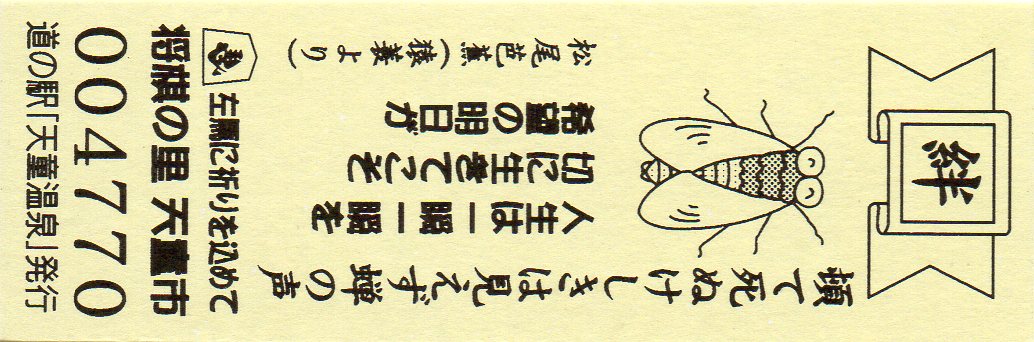 絆
頓て死ぬけしきは見えず蝉の声
人生は一瞬一瞬を
切に生きてこそ
希望の明日が
松尾芭蕉(猿蓑より)
馬
左馬に祈りを込めて
将棋の里 天童市
004770
道の駅「天童温泉」発行